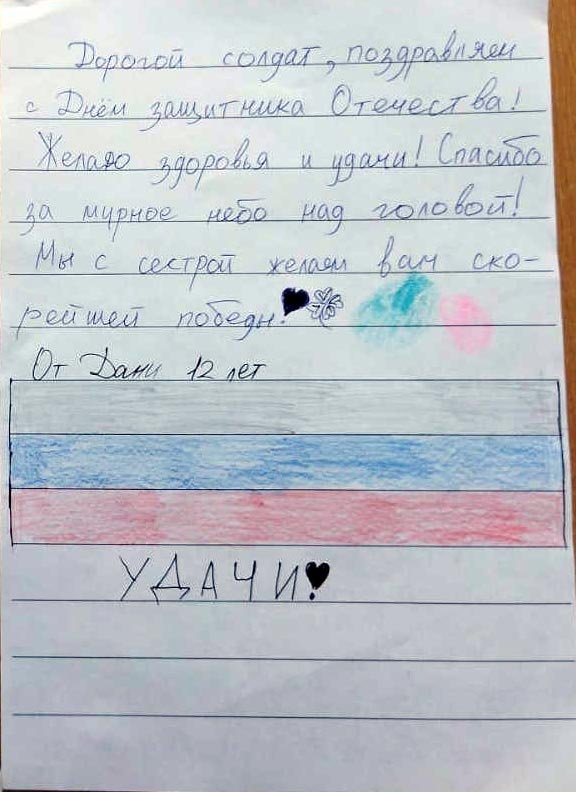 Дорогой солдат, поздравляем
с Днём защитника Отечества!
Желаю здоровья и удачи! Спасибо
за мирное небо над головой!
Мы с сестрой желаем вам ско-
рейшей победы!
От Дани 12 лет
УДАЧИ!